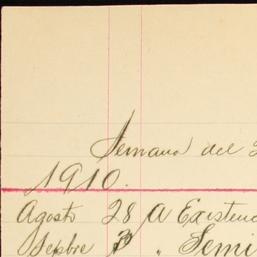 Semana del
1910.
Agosto 28 A Existenc
Sepbre 3 " Semi